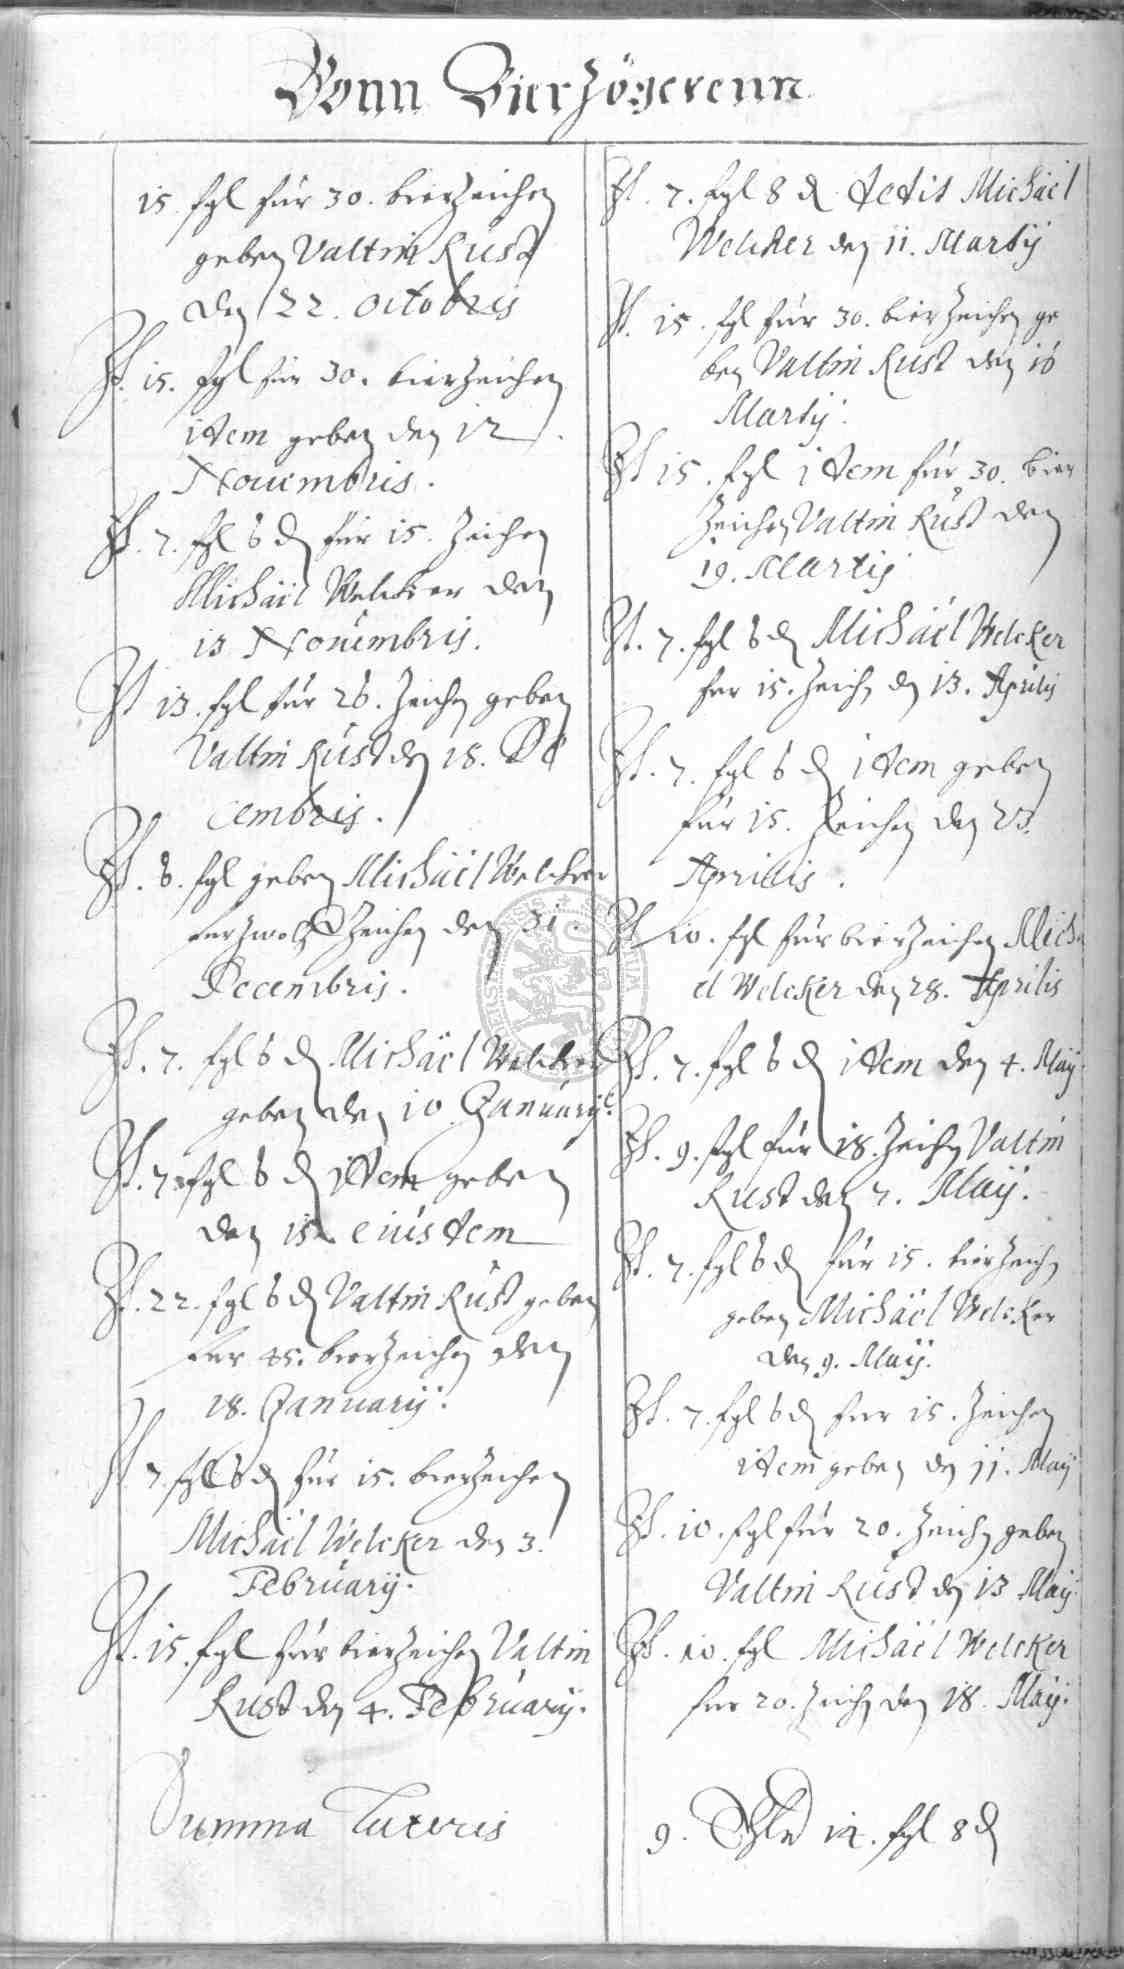 Vonn Bierzögerenn
15. ßgl für 30. bierzeichen
geben Valtin Rust
den 22. octobris
It. 15. ßgl für 30. bierzeichen
item geben den 12
Nouembris.
It. 7. ßgl 6 d für 15. Zeichen
Michäel Welcker den
13 Nouembris.
It 13. ßgl für 26. Zeichen geben
Valtin Rust den 18. De
cembris.
It. 6. ßgl geben Michäel Welcker
fur zwolf Zeichen den 31.
Decembris.
It. 7. ßgl 6 d Michäel Welcker
geben den 10 Januarij.
It. 7 ßgl 6 d item geben
den 15. eiusdem
It. 22. ßgl 6 d Valtin Rust geben
fur 45. bierzeichen den
18. Januarij.
It 7. ßgl 6 d für 15. bierzeichen
Michäel Welcker den 3.
February.
It. 15. ßgl für bierzeichen Valtin
Rust den 4. February.
Summa
It. 7. ßgl 8 d dedit Michäel
Welcker den 11. Martij
It. 15. ßgl für 30. bierzeichen ge
ben Valtin Rust den 16
Martij.
It 15. ßgl item für 30. bier
Zeichen Valtin Rust den
19. Martij
It. 7. ßgl 6 d Michäel Welcker
fur 15. Zeich den 13. Aprilis
It. 7. ßgl 6 d item geben
für 15. Zeichen den 23.
Aprilis.
It 10. ßgl für bierzeichen Micha
el Welcker den 28. Aprilis
It. 7. ßgl 6 d item den 4. May.
It. 9. ßgl für 18. Zeichen Valtin
Rust den 7. May.
It. 7. ßgl 6 d für 15. bierzeich
geben Michäel Welcker
den 9. May.
It. 7. ßgl 6 d fur 15. Zeichen
item geben den 11. May
It. 10. ßgl für 20. Zeichen geben
Valtin Rust den 13 May
It. 10. ßgl Michäel Welcker
fur 20. Zeich den 18. May.
9. 14. ßgl 8 d